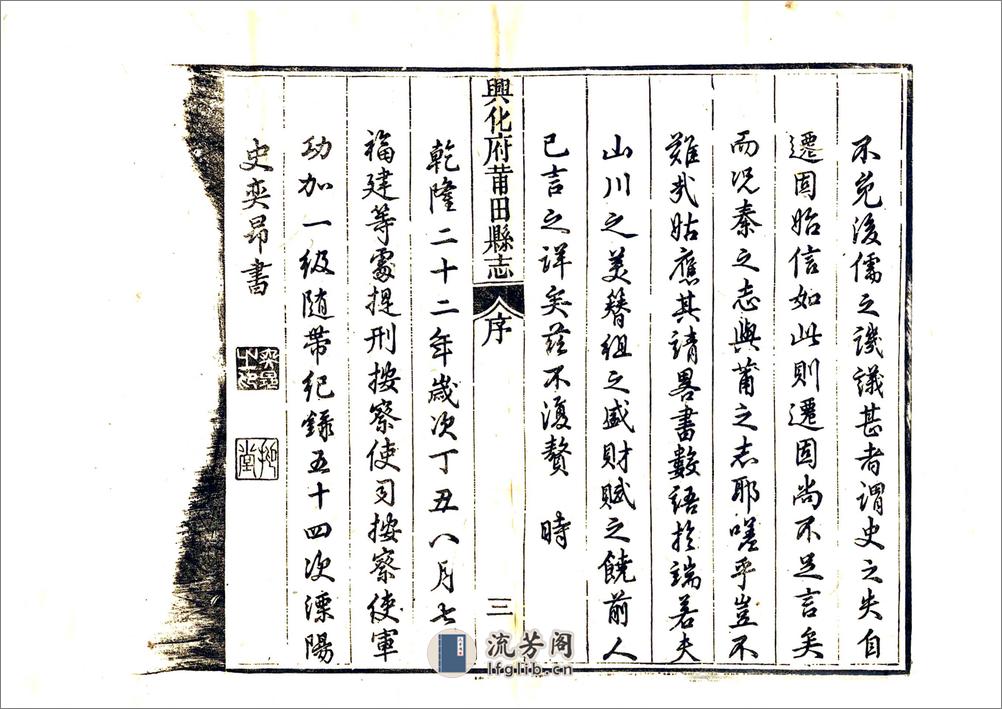 不免後儒之譏議甚者謂史之失自
遷固始信如此則遷固尚不足言矣
而况秦之志與莆之志耶嗟乎豈不
難哉姑應其請畧書數語於端若夫
山川之美簪組之盛財賦之饒前人
已言之詳矣茲不復贅　時
興化府莆田縣志　序　三
乾隆二十二年歲次丁丑八月七
福建等處提刑按察使司按察使軍
功加一級隨帶紀錄五十四次溧陽
史奕昂書
奕昂之印
流芳阁
lfglib.cn